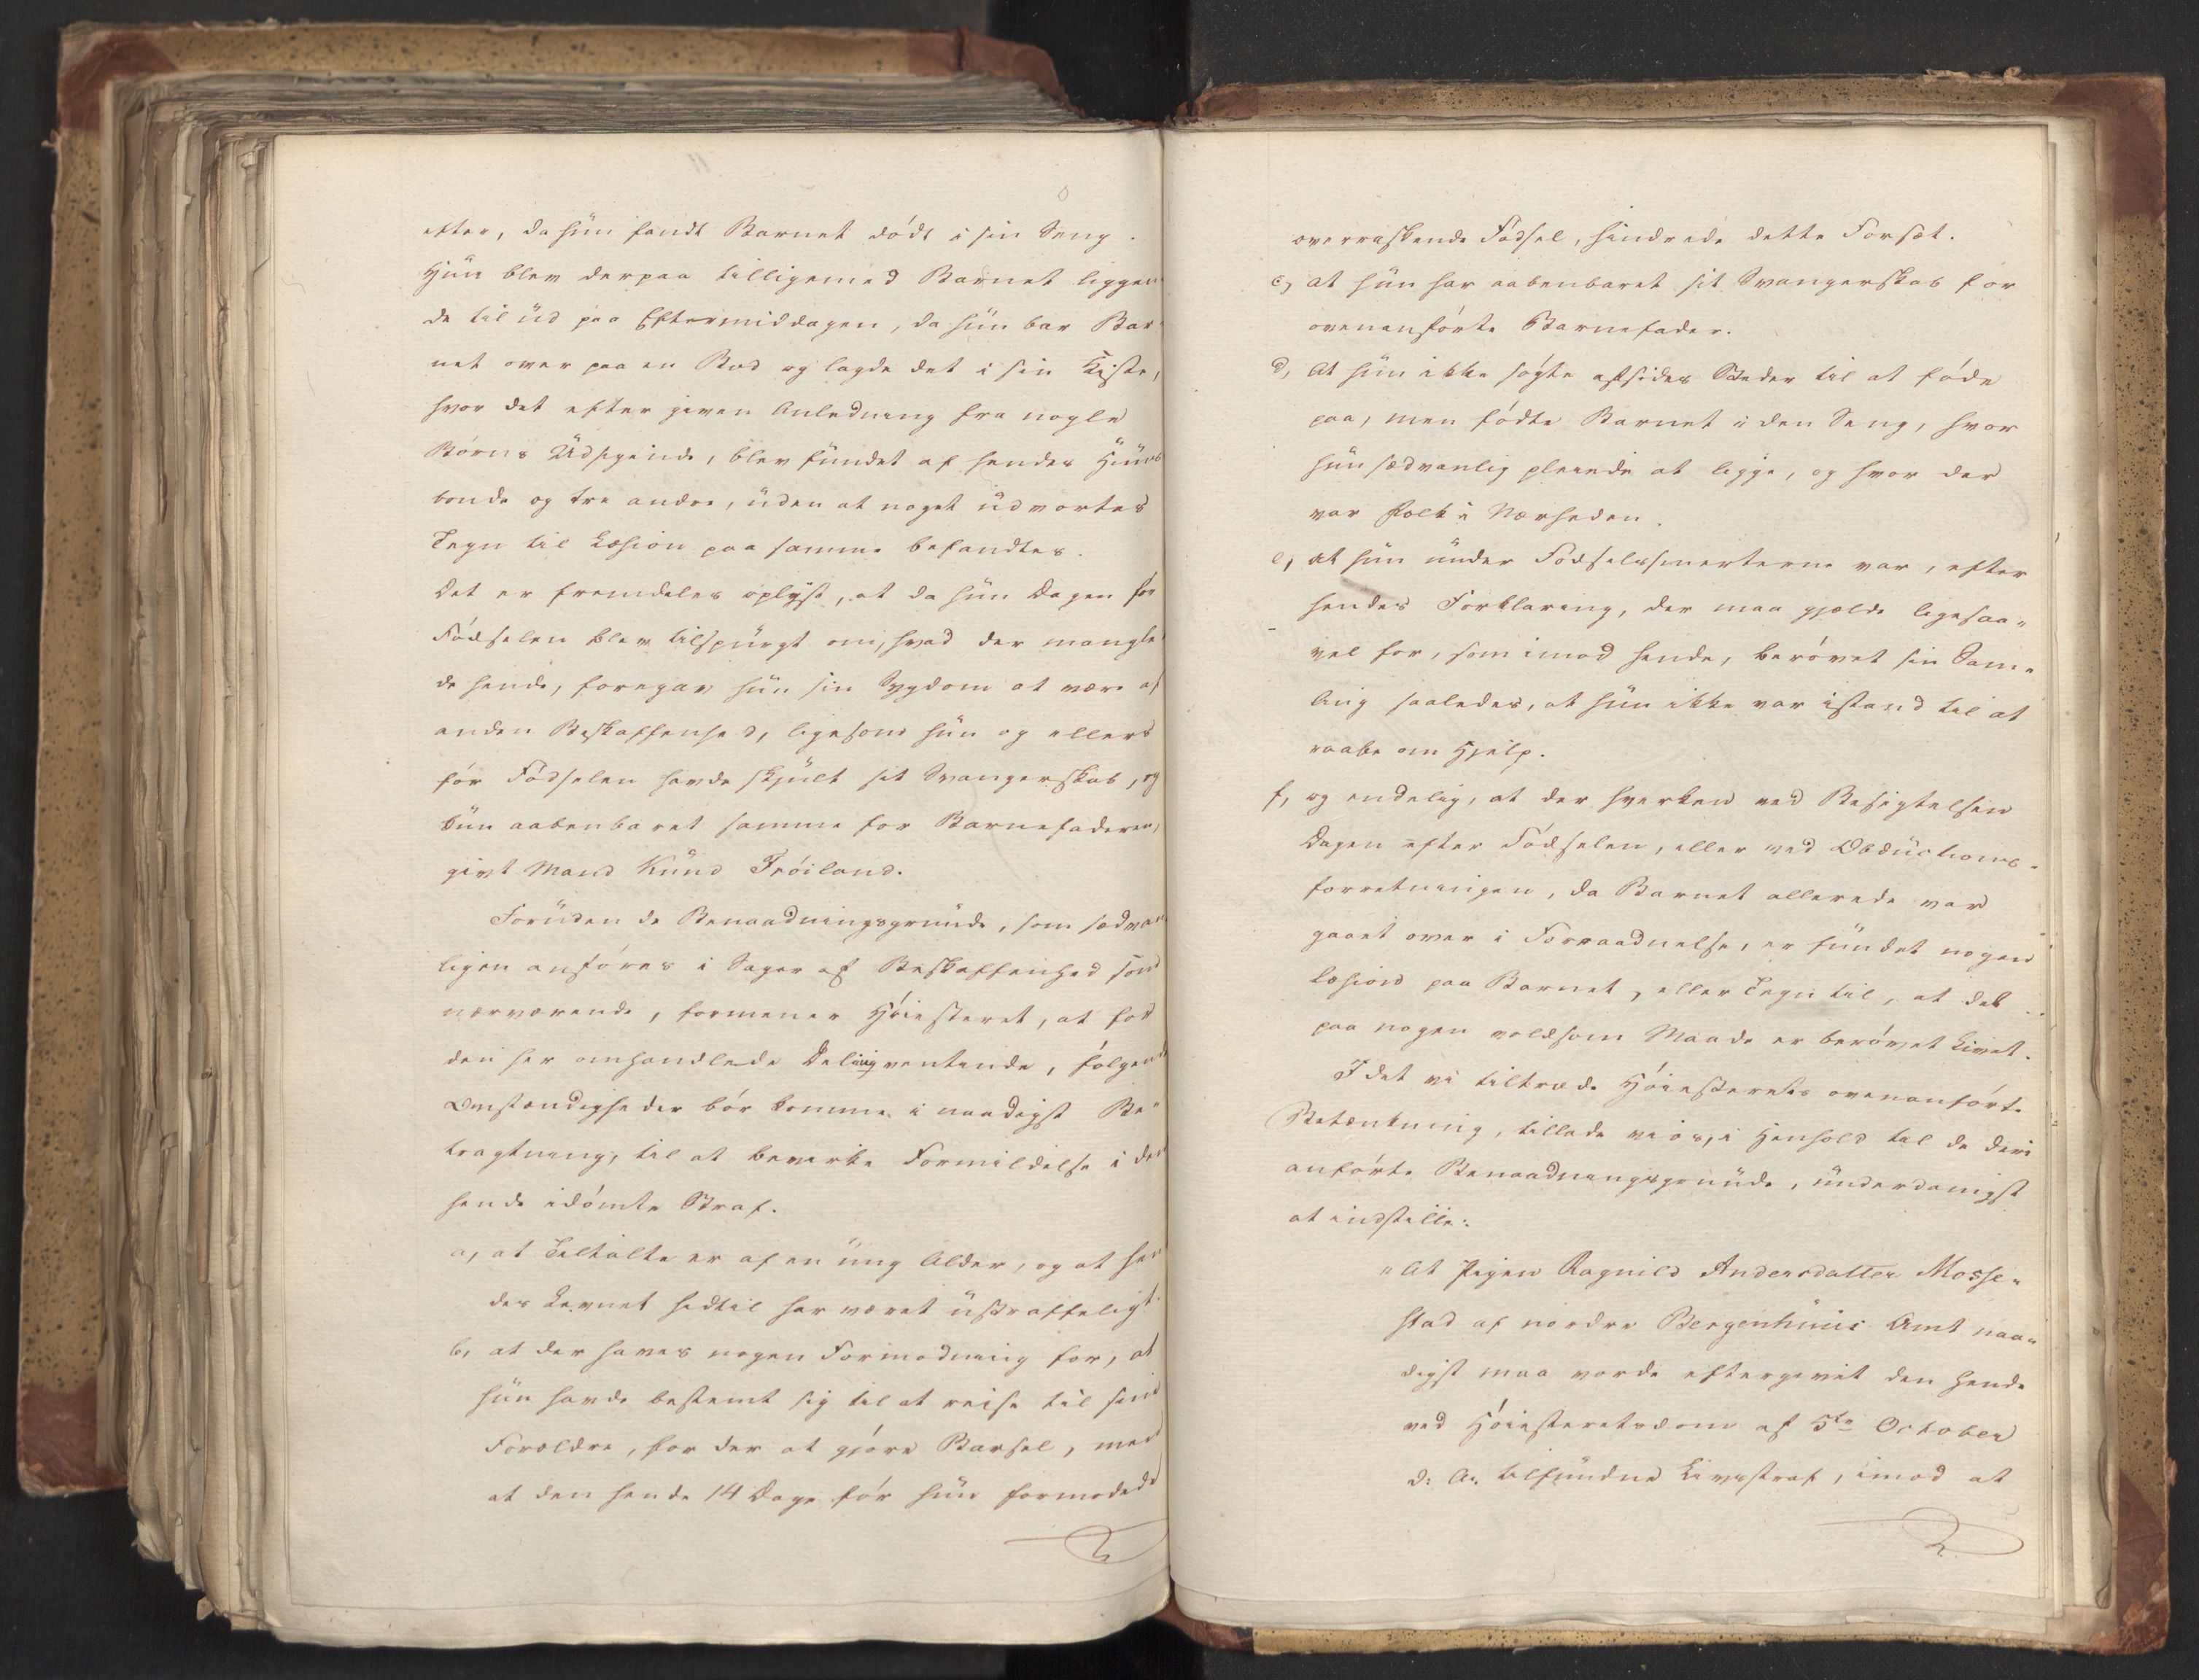 efter, da hun fandt Barnet dødt i sin Seng.
Hun blev derpaa tilligemed Barnet liggen
de til ud paa Eftermiddagen, da hun bar Bar
net over paa en Bod og lagde det i sin Kiste,
hvor det efter given Anledning fra nogle
Børns Udsigende, blev fundet af hendes Huus
bonde og tre andre, uden at noget udvortes
Tegn til Læsion paa samme befandtes.
Det er fremdeles oplyst, at da hun Dagen før
Fødselen blev tilspurgt om, hvad der mangle
de hende, foregav hun sin Sygdom at være af
anden Beskaffenhed, ligesom hun og ellers
før Fødselen havde skjult sit Svangerskab, og
kun aabenbaret samme for Barnefaderen,
givt Mand Knud Frøiland.
Foruden de Benaadningsgrunde, som sædvan
ligen anføres i Sager af Beskaffenhed som
nærværende, formener Høiesteret, at for
den her omhandlede Delinqventinde, følgende
Omstændigheder bør komme i naadigst Be"
tragtning, til at bevirke Formildelse i den
hende idømte Straf.
a, at Tiltalte er af en ung Alder, og at hen
des Levnet hidtil har været ustraffeligt.
b, at der haves nogen Formodning for, at
hun havde bestemt sig til at reise til sine
Forældre, for der at gjøre Barsel, men
at den hende 14 Dage før hun formodede
overraskende Fødsel, hindrede dette Forsæt.
c, at hun har aabenbaret sit Svangerskab for
ovenanførte Barnefader.
d, At hun ikke søgte afsides Steder til at føde
paa, men fødte Barnet i den Seng, hvor
hun sædvanlig pleiede at ligge, og hvor der
var Folk i Nærheden.
e, at hun under Fødselssmerterne var, efter
hendes Forklaring, der maa gjælde ligesaa„
vel for, som imod hende, berøvet sin Sam„
ling saaledes, at hun ikke var istand til at
raabe om Hjelp.
f, og endelig, at der hverken ved Besigtelsen
Dagen efter Fødselen, eller ved Obductions-
forretningen, da Barnet allerede var
gaaet over i Forraadnelse, er fundet nogen
læsion paa Barnet, eller Tegn til, at det
paa nogen voldsom Maade er berøvet Livet.
Idet vi tiltræde Høiesterets ovenanførte
Betænkning, tillade vi os, i Henhold til de deri
anførte Benaadningsgrunde, underdanigst
at indstille:
"At Pigen Ragnild Andersdatter Mosse„
stad af nordre Bergenhuus Amt naa„
digst maa vorde eftergivet den hende
ved Høiesteretsdom af 5te October
d: A: tilfundne Livsstraf, imod at